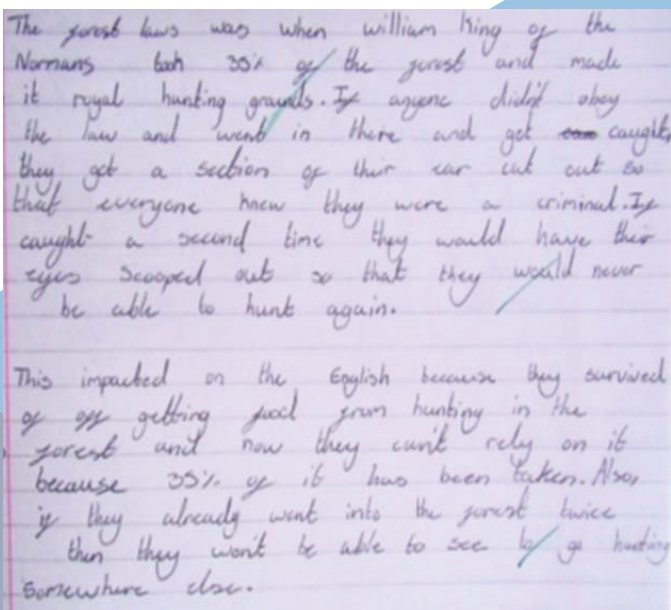 The forest laws was when william king of the
Normans took 35% of the forest and made
it royal hunting grounds. If anyone didn't obey
the law and went in there and got caught,
they got a section of their ear cut out so
that everyone knew they were a criminal. If
caught a second time they would have their
eyes scooped out so that they would never
be able to hunt again.
This impacted on the English because they survived
of off getting food from hunting in the
forest and now they can't rely on it
because 35% of it has been taken. Also,
if they already went into the forest twice
then they won't be able to see to go hunting
somewhere else.